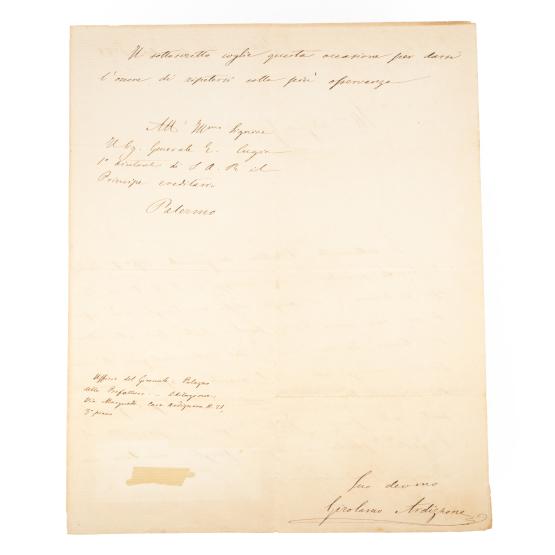 Il sottoscritto coglie questa occasione per darsi
l'onore di ripetersi colla più osservanza
All' Ill.mo Signore
Il Sig. Generale E. Cugia
1° Aiutante di S. A. R. il
Principe ereditario
Palermo
Ufficio del Giornale. Palazzo
della Prefettura
Via Macqueda, Casa Ardizzone N. 21
3° piano
Suo dev.mo
Girolamo Ardizzone